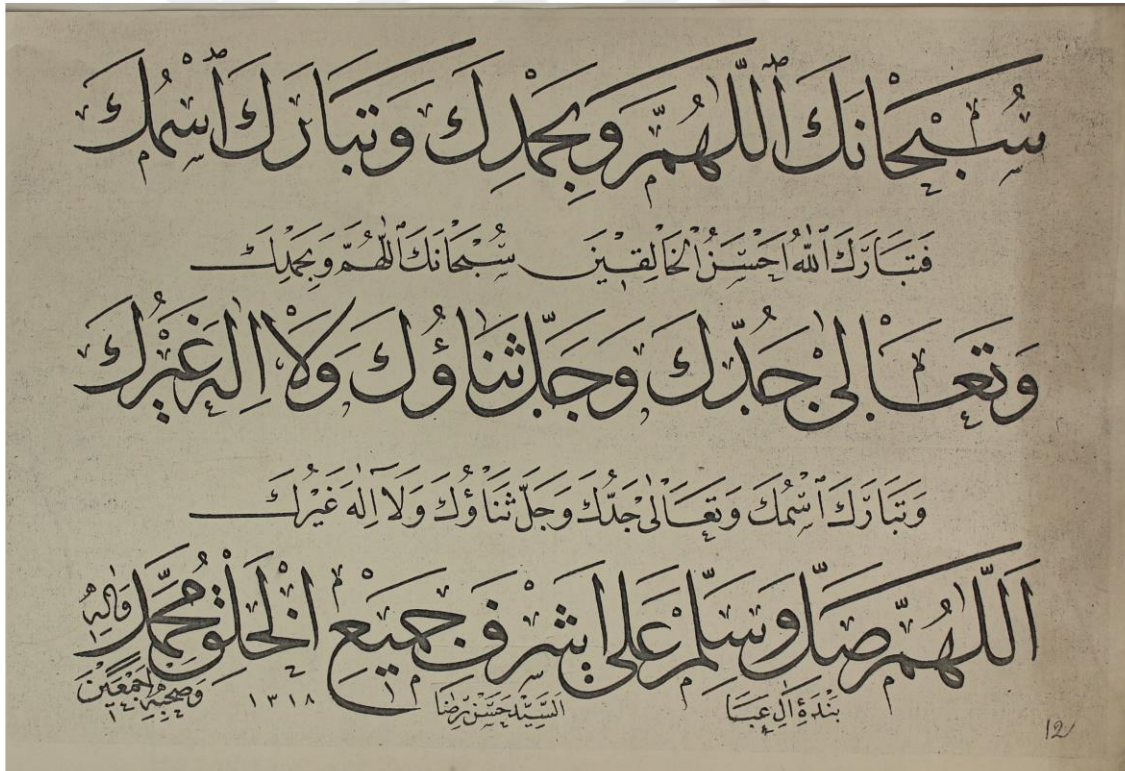 سُبْحَانَكَ ٱللّٰهُمَّ وَبِحَمْدِكَ وَتَبَارَكَ ٱسْمُكَ
فَتَبَارَكَ ٱللّٰهُ اَحْسَنُ الْخَالِقِينَ سُبْحَانَكَ ٱللّٰهُمَّ وَبِحَمْدِكَ
وَتَعَالٰى جَدُّكَ وَجَلَّ ثَنَاؤُكَ وَلَا اِلٰهَ غَيْرُكَ
وَتَبَارَكَ ٱسْمُكَ وَتَعَالٰى جَدُّكَ وَجَلَّ ثَنَاؤُكَ وَلَآ اِلٰهَ غَيْرُكَ
اَللّٰهُمَّ صَلِّ وَسَلِّمْ عَلٰى اَشْرَفِ جَمِيْعِ الْخَلْقِ مُحَمَّدٍ وَاٰلِهِ
وَصَحْبِهِ اَجْمَعِينَ
بَنْدَهٔ اٰلِ عَبَا اَلسَّيِّدْ حَسَنْ رِضَا ١٣١٨
12